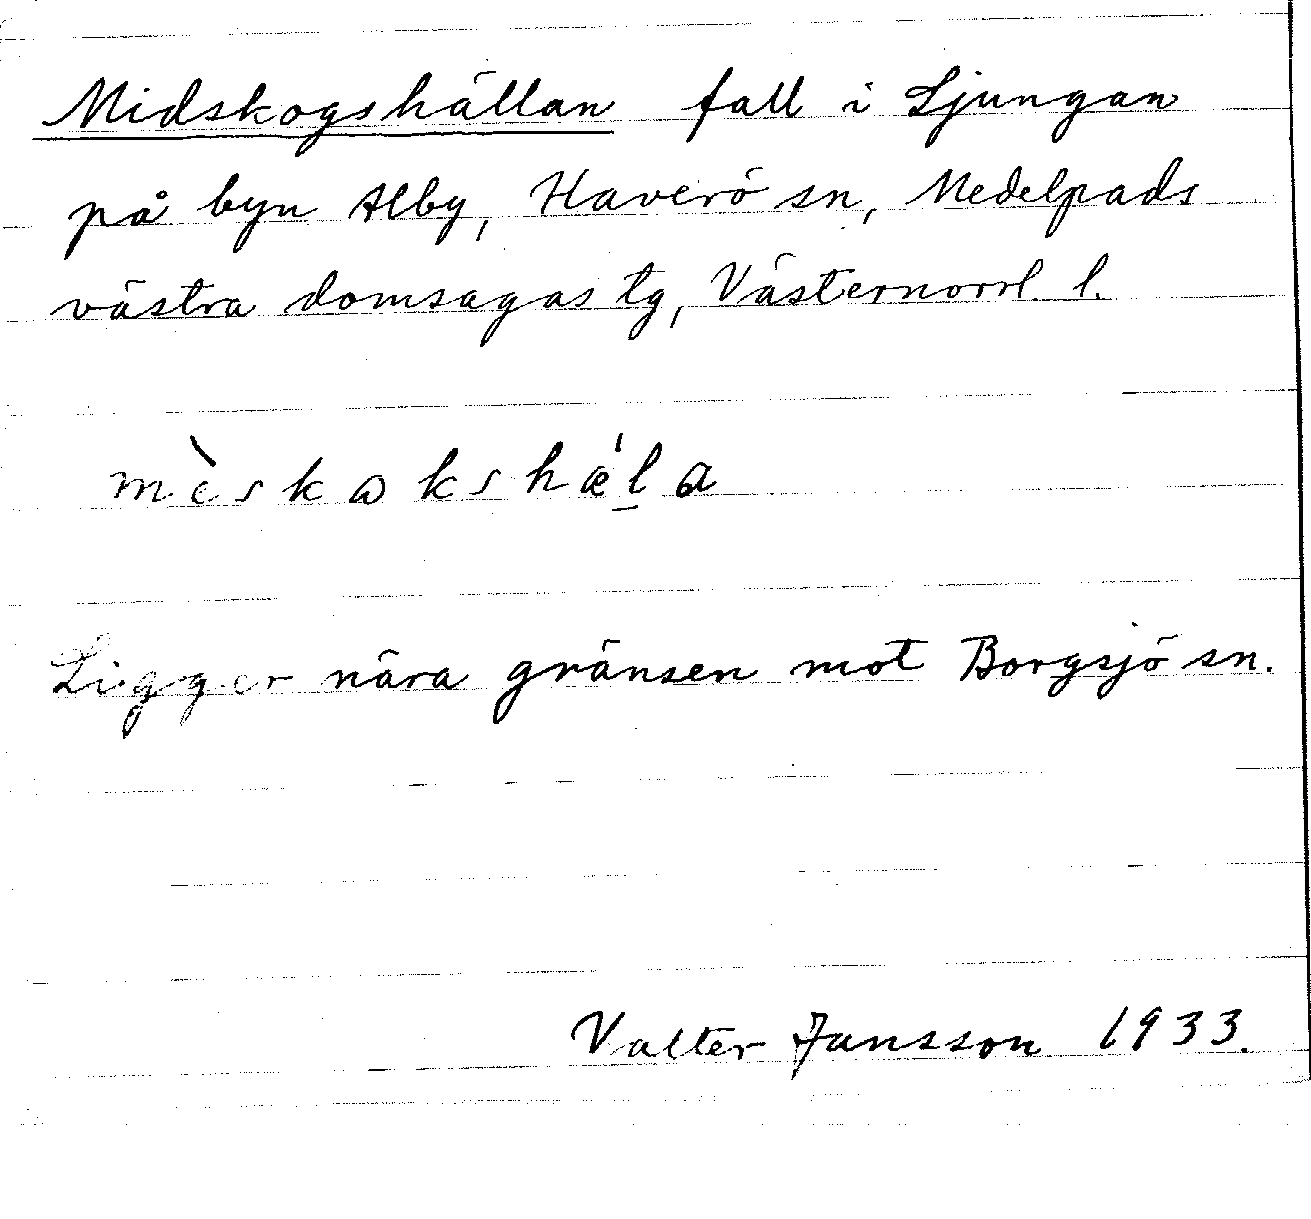 Midskogshällan fall i Ljungan
på byn Alby, Haverö sn, Medelpads
västra domsagas tg, Västernorrl. l.
mèskakshǽl̲a
Ligger nära gränsen mot Borgsjö sn.
Valter Jansson 1933.